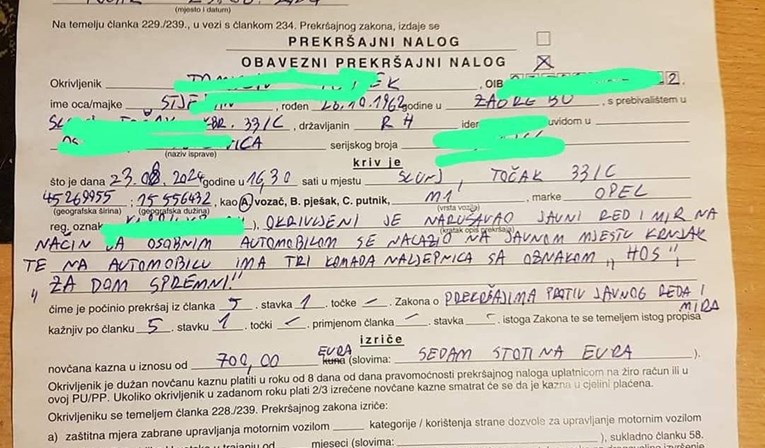 (mjesto i datum)
Na temelju članka 229./239., u vezi s člankom 234. Prekršajnog zakona, izdaje se
PREKRŠAJNI NALOG
OBAVEZNI PREKRŠAJNI NALOG
Okrivljenik , OIB 2
ime oca/majke , rođen 26.10.1962 godine u ZAGREBU , s prebivalištem u
33/C , državljanin RH uvidom u
(naziv isprave) serijskog broja
kriv je
što je dana 23.08.2024 godine u 16,30 sati u mjestu SLUNJ TOČAK 33/C
45269955 ; 15.556432, kao A) vozač, B. pješak, C. putnik, M1 , marke OPEL
(geografska širina) (geografska dužina) (vrsta vozila)
reg. oznake ), OKRIVLJENI JE NARUŠAVAO JAVNI RED I MIR NA
(kratak opis prekršaja)
NAČIN DA OSOBNIM AUTOMOBILOM SE NALAZIO NA JAVNOM MJESTU
TE NA AUTOMOBILU IMA TRI KOMADA NALJEPNICA SA OZNAKOM „HOS"
„ZA DOM SPREMNI."
čime je počinio prekršaj iz članka 5 . stavka 1 . točke – . Zakona o PREKRŠAJIMA PROTIV JAVNOG REDA I
MIRA
kažnjiv po članku 5 . stavku 1 . točki – . primjenom članka – . stavka – . istoga Zakona te se temeljem istog propisa
izriče
novčana kazna u iznosu od 700,00 EURA kuna (slovima: SEDAM STOTINA EURA ).
Okrivljenik je dužan novčanu kaznu platiti u roku od 8 dana od dana pravomoćnosti prekršajnog naloga uplatnicom na žiro račun ili u
ovoj PU/PP. Ukoliko okrivljenik u zadanom roku plati 2/3 izrečene novčane kazne smatrat će se da je kazna u cjelini plaćena.
Okrivljeniku se temeljem članka 228./239. Prekršajnog zakona izriče:
a) zaštitna mjera zabrane upravljanja motornim vozilom kategorije / korištenja strane dozvole za upravljanje motornim vozilom
u trajanju od mjeseci (slovima: ), sukladno članku 58.